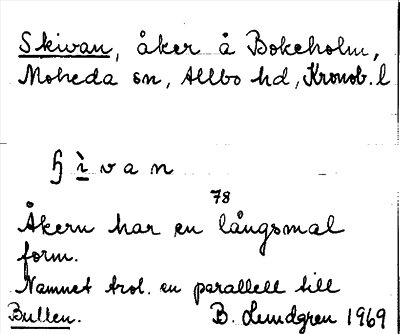 Skivan, åker å Bokeholm,
Moheda sn, Allbo hd, Kronob. l
ɧ ì v a n
78
Åkern har en långsmal
form.
Namnet trol. en parallell till
Bullen. B. Lundgren 1969